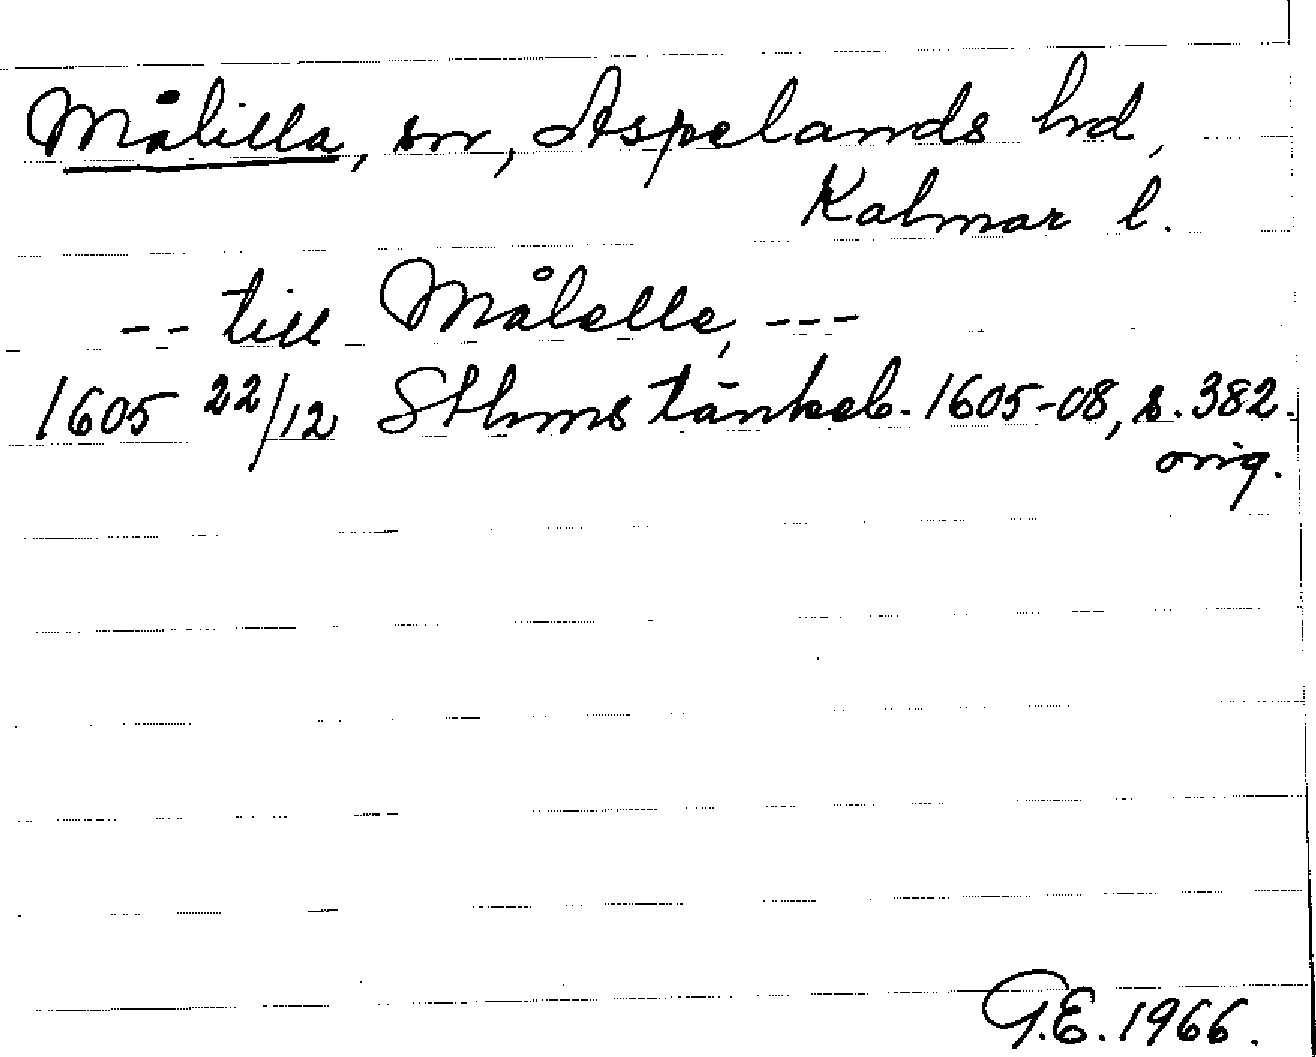 Målilla, sn, Aspelands hd,
Kalmar l.
-- till Målelle, ---
1605 22/12 Sthms tänkeb. 1605-08, s. 382.
orig.
G.E. 1966.